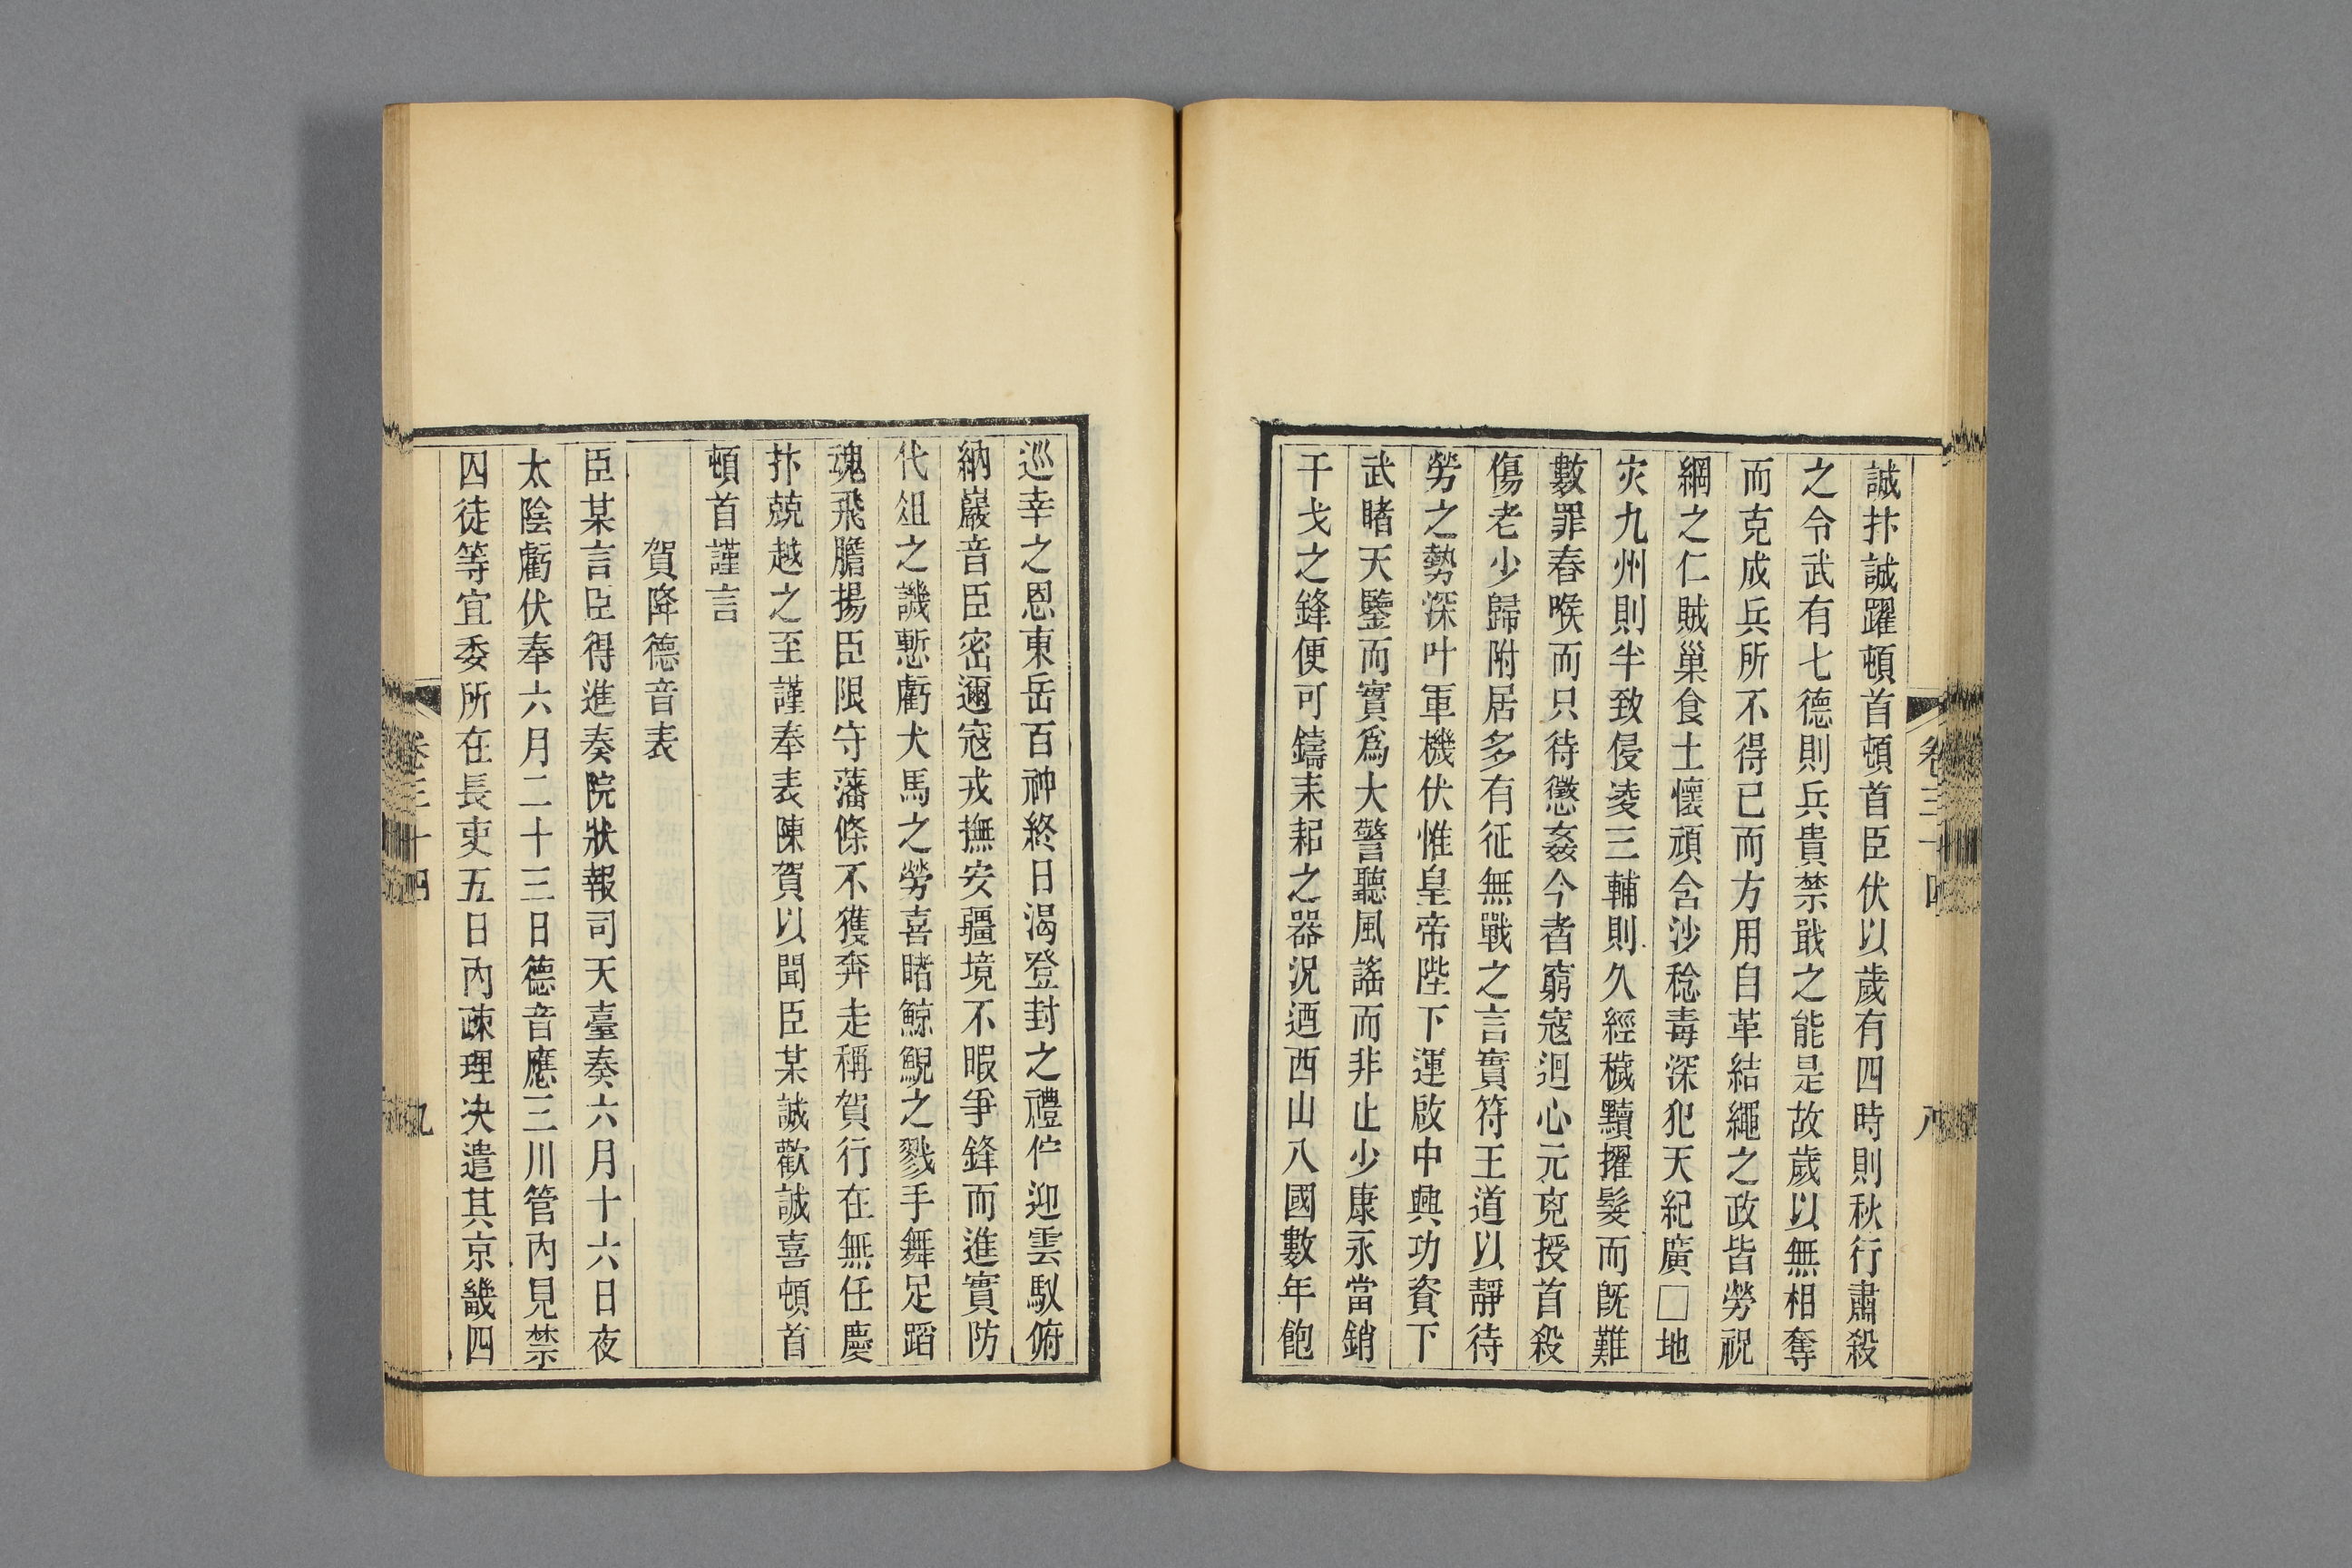 卷三十四
八
誠抃誠躍頓首頓首臣伏以歲有四時則秋行肅殺
之令武有七德則兵貴禁戢之能是故歲以無相奪
而克成兵所不得已而方用自革結繩之政皆勞祝
網之仁賊巢食土懷頑含沙稔毒深犯天紀廣□地
灾九州則半致侵凌三輔則久經穢黷擢髮而旣難
數罪舂喉而只待懲姦今者窮寇迴心元兇授首殺
傷老少歸附居多有征無戰之言實符王道以靜待
勞之勢深叶軍機伏惟皇帝陛下運啟中興功資下
武睹天鑒而實爲大警聽風謠而非止少康永當銷
干戈之鋒便可鑄耒耜之器況迺西山八國數年飽
巡幸之恩東岳百神終日渴登封之禮伫迎雲馭俯
納巖音臣密邇寇戎撫安疆境不暇爭鋒而進實防
代俎之譏慙虧犬馬之勞喜睹鯨鯢之戮手舞足蹈
魂飛膽揚臣限守藩條不獲奔走稱賀行在無任慶
抃兢越之至謹奉表陳賀以聞臣某誠歡誠喜頓首
頓首謹言
賀降德音表
臣某言臣得進奏院狀報司天臺奏六月十六日夜
太陰虧伏奉六月二十三日德音應三川管內見禁
囚徒等宜委所在長吏五日內疎理决遣其京畿四
卷三十四
九